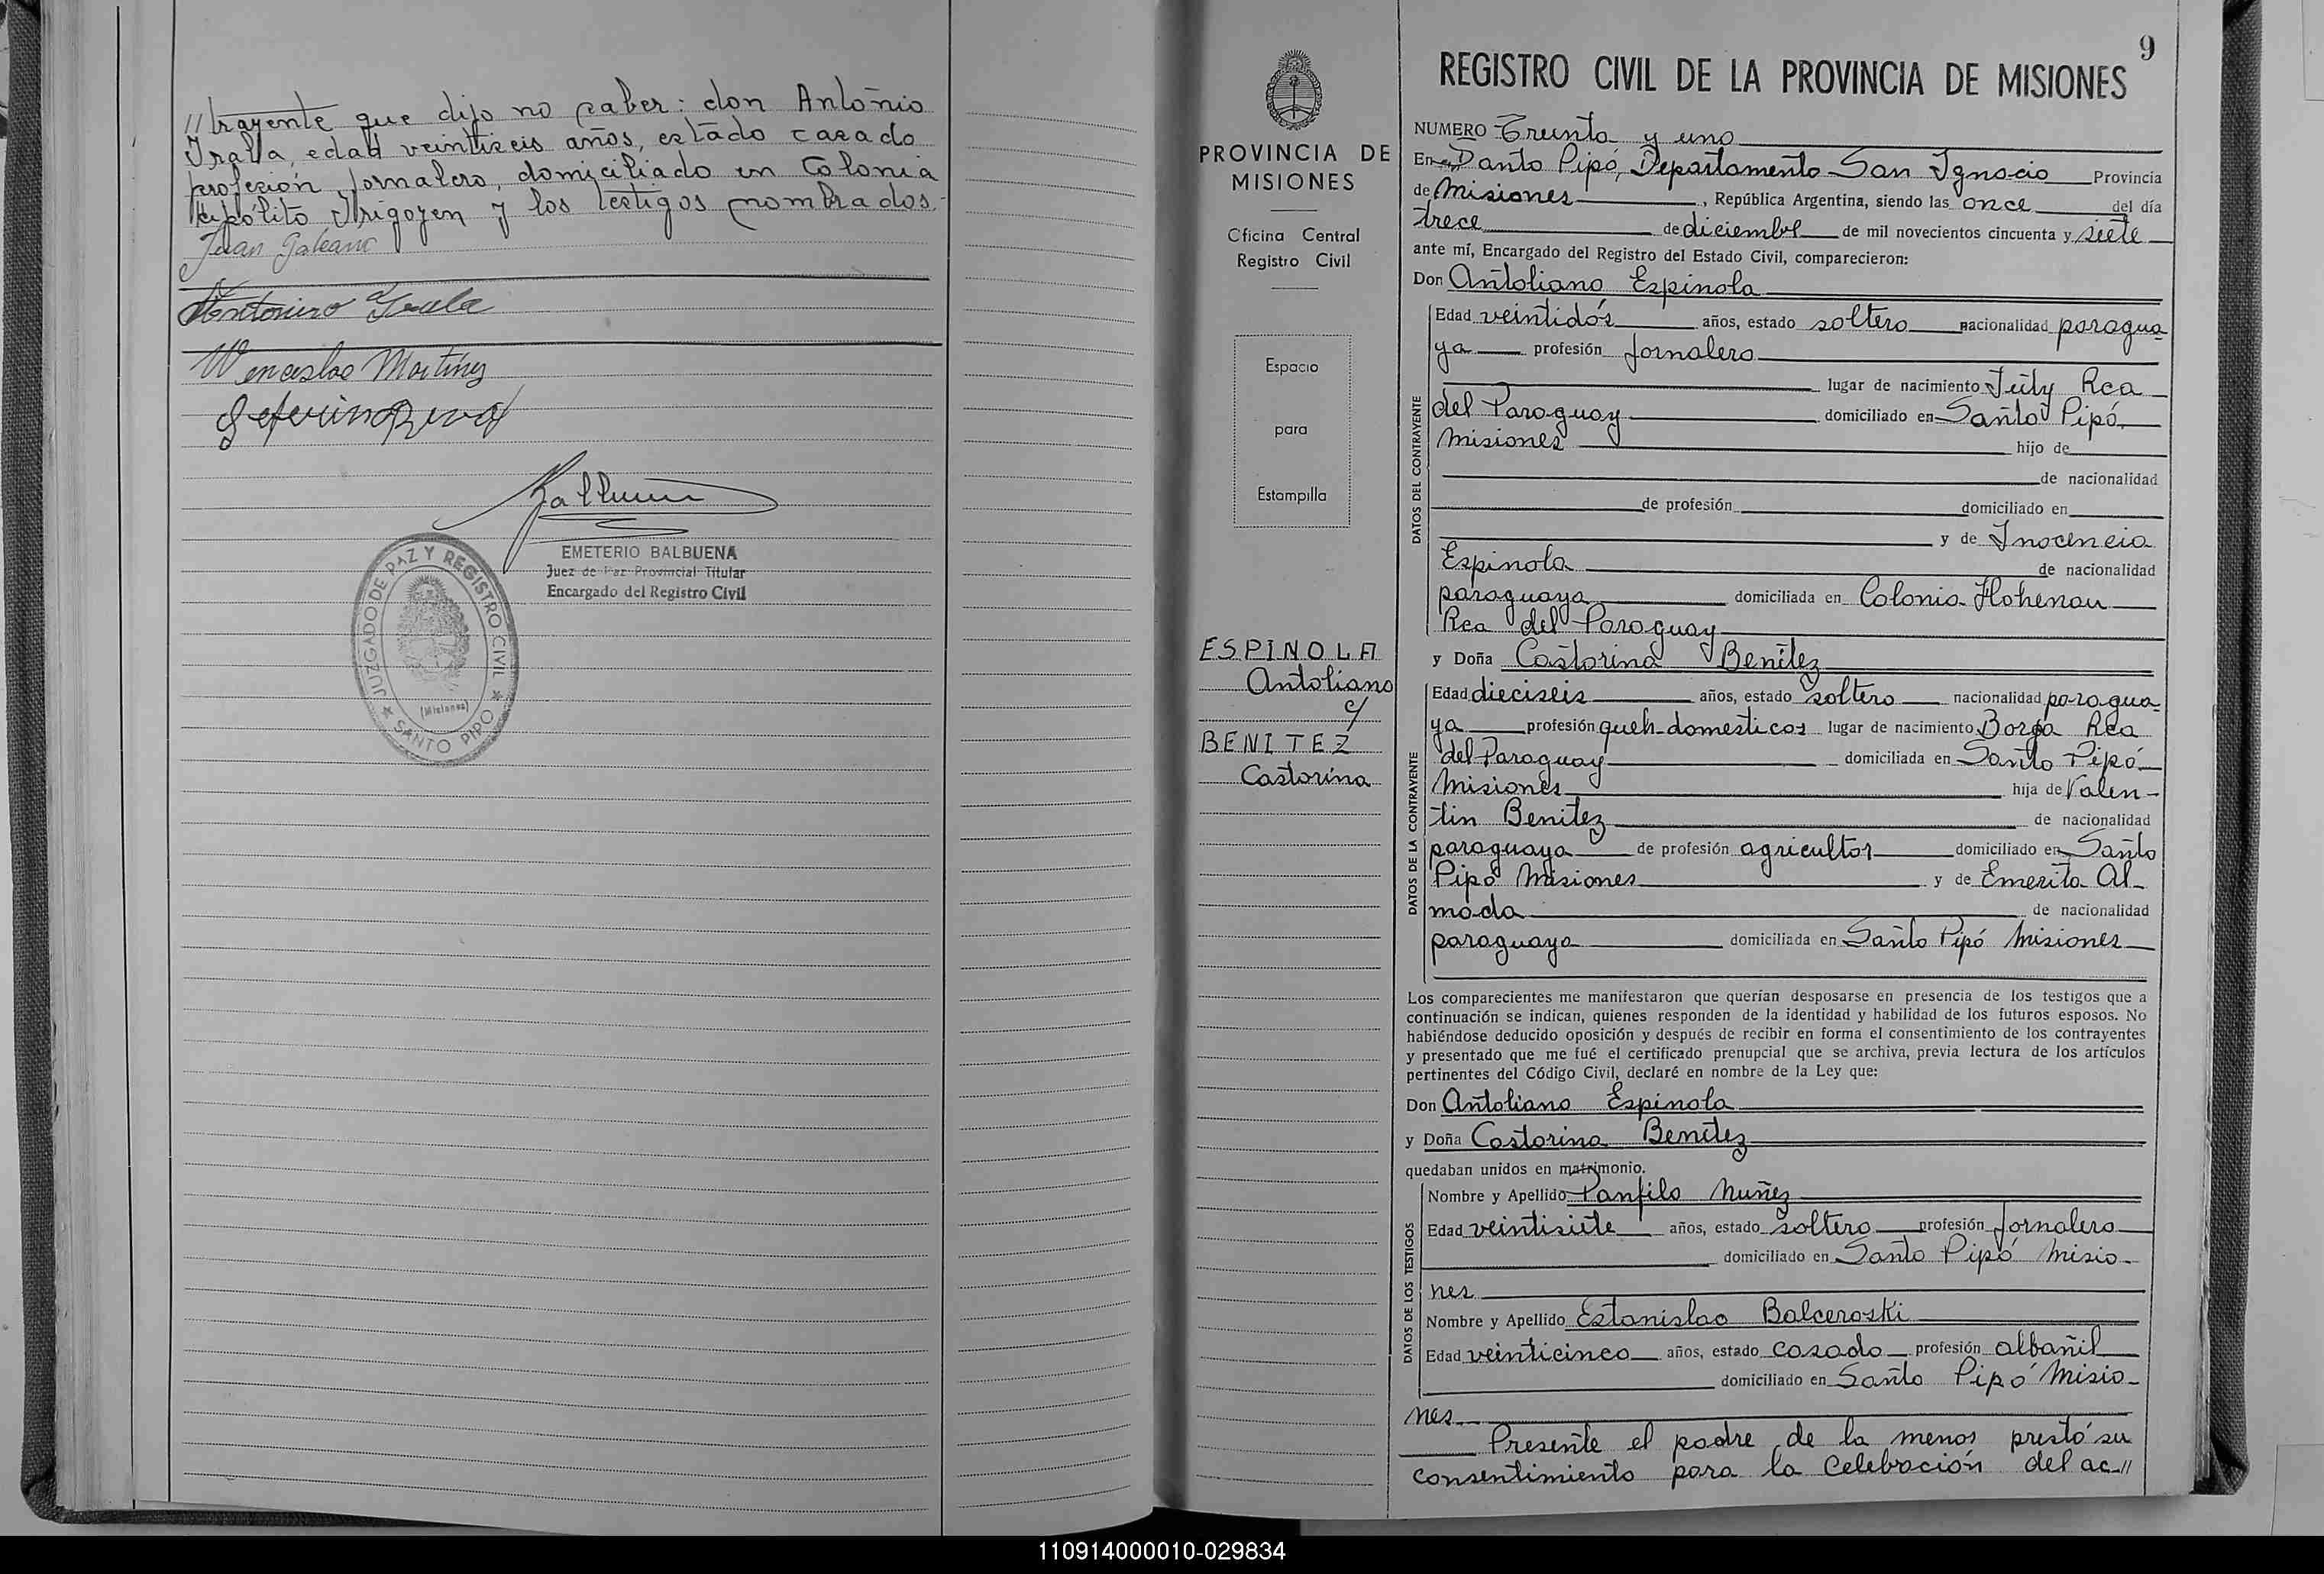 // trayente que dijo no saber: don Antonio
Iralla, edad veintiseis años, estado casado
profesión jornalero, domiciliado en Colonia
Hipólito Irigoyen y los testigos nombrados.-
Juan Galeano
Antonino Irala
Wenceslao Martínez
EMETERIO BALBUENA
Juez de Paz Provincial Titular
Encargado del Registro Civil
JUZGADO DE PAZ Y REGISTRO CIVIL
(Misiones)
★ SANTO PIPO ★
PROVINCIA DE
MISIONES
Oficina Central
Registro Civil
Espacio
para
Estampilla
ESPINOLA
Antoliano
c/
BENITEZ
Castorina
9
REGISTRO CIVIL DE LA PROVINCIA DE MISIONES
NUMERO Treinta y uno
En Santo Pipó, Departamento San Ignacio Provincia
de Misiones, República Argentina, siendo las once del día
trece de diciembre de mil novecientos cincuenta y siete
ante mí, Encargado del Registro del Estado Civil, comparecieron:
Don Antoliano Espinola
DATOS DEL CONTRAYENTE
Edad veintidós años, estado soltero nacionalidad paragua-
ya profesión jornalero
lugar de nacimiento Yuty Rca
del Paraguay domiciliado en Santo Pipó
Misiones hijo de
de nacionalidad
de profesión domiciliado en
y de Inocencia
Espinola de nacionalidad
paraguaya domiciliada en Colonia Hohenau
Rca del Paraguay
y Doña Castorina Benitez
DATOS DE LA CONTRAYENTE
Edad dieciseis años, estado soltero nacionalidad paragua-
ya profesión queh-domesticos lugar de nacimiento Borja Rca
del Paraguay domiciliada en Santo Pipó
Misiones hija de Valen-
tin Benitez de nacionalidad
paraguaya de profesión agricultor domiciliado en Santo
Pipó Misiones y de Emerita Al-
mada de nacionalidad
paraguaya domiciliada en Santo Pipó Misiones
Los comparecientes me manifestaron que querían desposarse en presencia de los testigos que a
continuación se indican, quienes responden de la identidad y habilidad de los futuros esposos. No
habiéndose deducido oposición y después de recibir en forma el consentimiento de los contrayentes
y presentado que me fué el certificado prenupcial que se archiva, previa lectura de los artículos
pertinentes del Código Civil, declaré en nombre de la Ley que:
Don Antoliano Espinola
y Doña Castorina Benitez
quedaban unidos en matrimonio.
DATOS DE LOS TESTIGOS
Nombre y Apellido Panfilo Nuñez
Edad veintisiete años, estado soltero profesión jornalero
domiciliado en Santo Pipó Misio-
nes
Nombre y Apellido Estanislao Balceroski
Edad veinticinco años, estado casado profesión albañil
domiciliado en Santo Pipó Misio-
nes
Presente el padre de la menor prestó su
consentimiento para la celebración del ac//
110914000010-029834